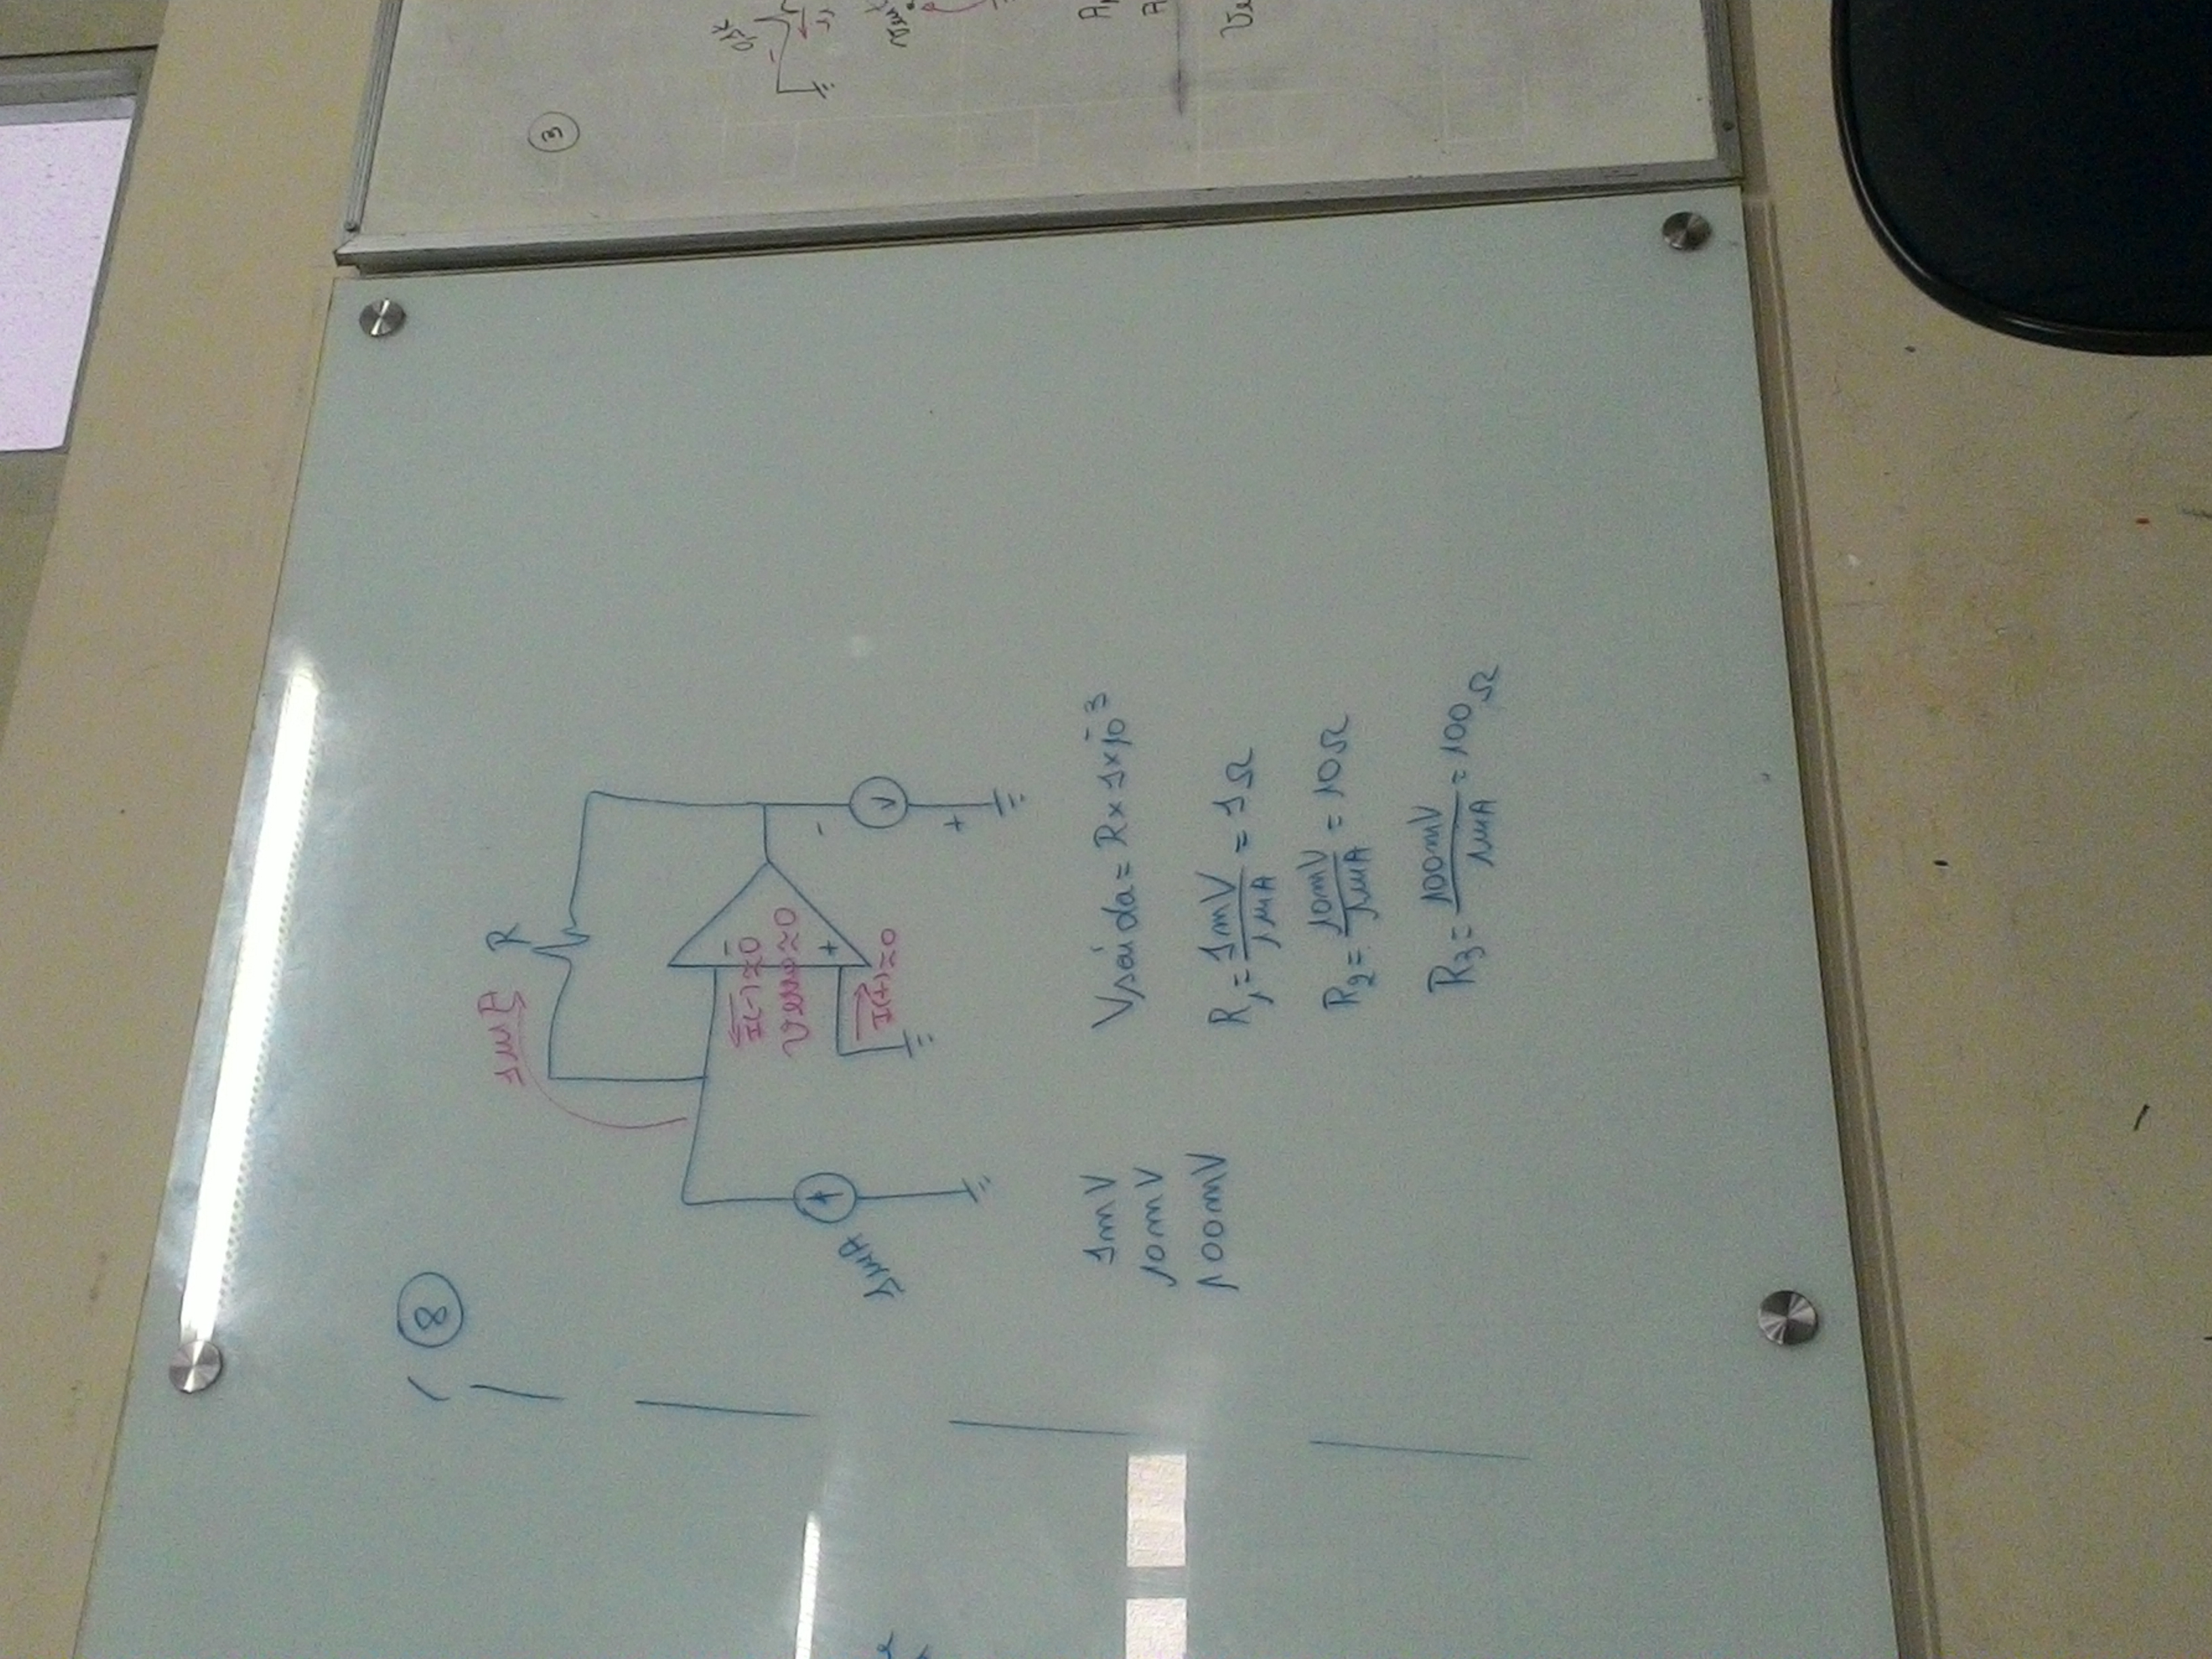 8
1mA
R
I(-)≈0
-
Verro≈0
+
I(+)≈0
1mA
-
V
+
1mV
10mV
100mV
Vsaída = R×1×10⁻³
R₁ = 1mV/1mA = 1Ω
R₂ = 10mV/1mA = 10Ω
R₃ = 100mV/1mA = 100Ω
3
0,1k
-